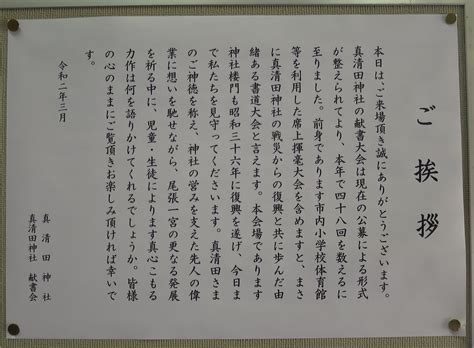 ご挨拶
本日は、ご来場頂き誠にありがとうございます。
真清田神社の献書大会は現在の公募による形式
が整えられてより、本年で四十八回を数えるに
至りました。前身であります市内小学校体育館
等を利用した席上揮毫大会を含めますと、まさ
に真清田神社の戦災からの復興と共に歩んだ由
緒ある書道大会と言えます。本会場であります
神社楼門も昭和三十六年に復興を遂げ、今日ま
で私たちを見守ってくださいます。真清田さま
のご神徳を称え、神社の営みを支えた先人の偉
業に想いを馳せながら、尾張一宮の更なる発展
を祈る中に、児童・生徒によります真心こもる
力作は何を語りかけてくれるでしょうか。皆様
の心のままにご覧頂きお楽しみ頂ければ幸いで
す。
令和二年三月
真清田神社
真清田神社 献書会